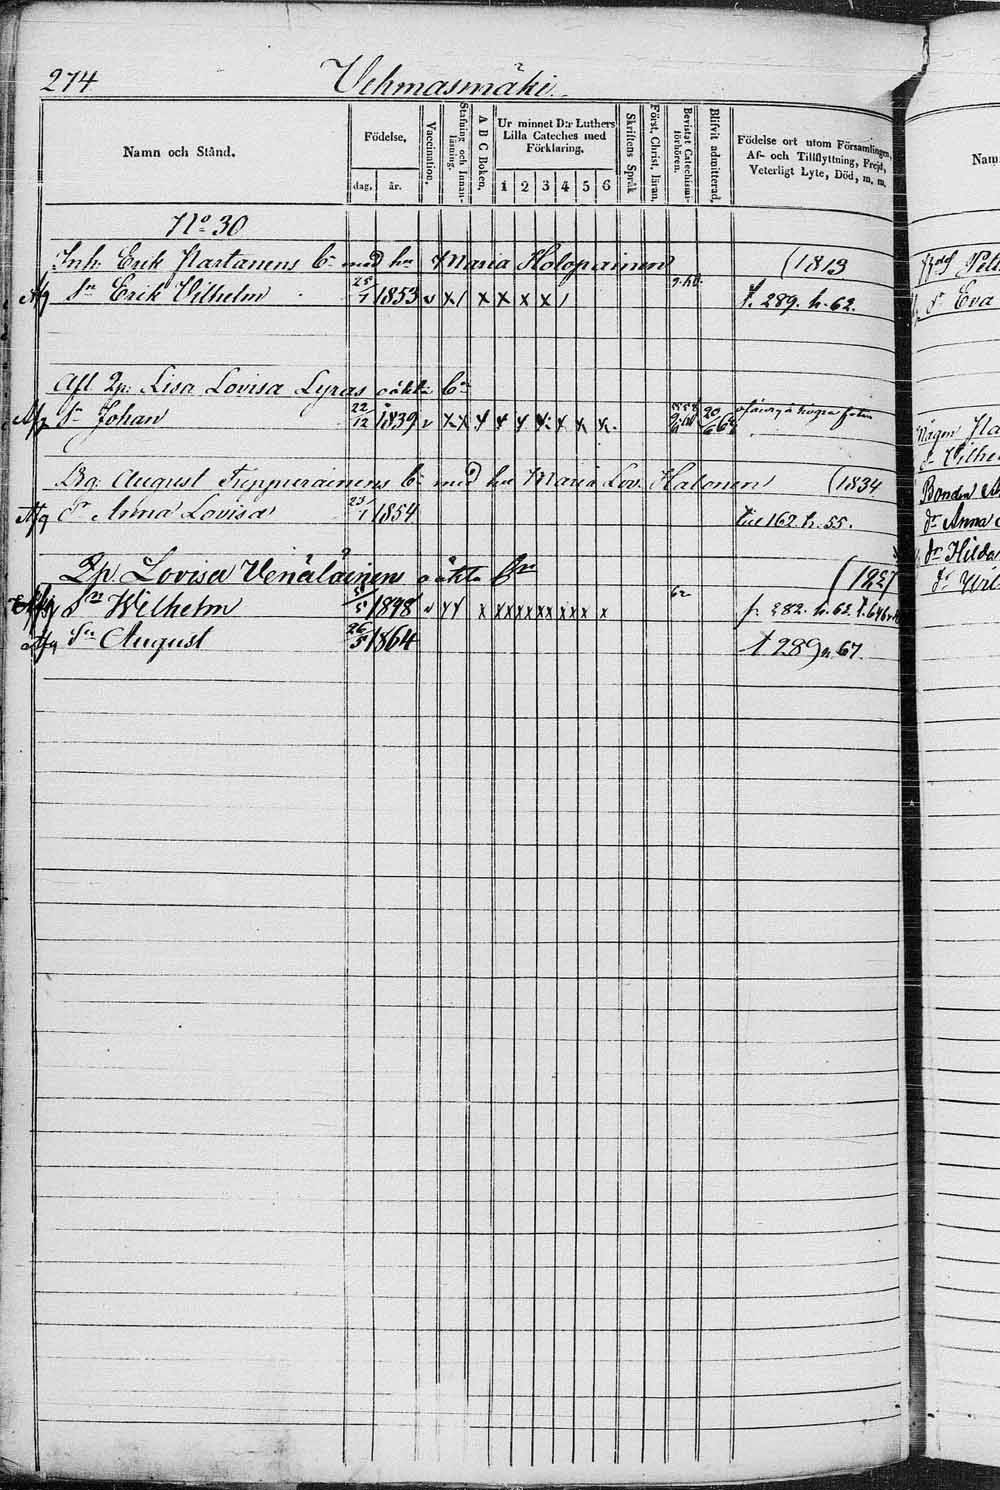 274 Vehmasmäki
Namn och Stånd.
Födelse.
dag. år.
Vaccination.
Stafning och Innanläsning.
A B C Boken.
Ur minnet D:r Luthers
Lilla Cateches med
Förklaring.
1 2 3 4 5 6
Skriftens Språk
Först. Christ. läran.
Bevistat Catechismi-förhören.
Blifvit admitterad.
Födelse ort utom Församlingen,
Af- och Tillflyttning, Frejd,
Veterligt Lyte, Död, m. m.
Nam
No 30
Inh. Erik Nartanens bn med hu Maria Holopainen (1819
Afg Sn Erik Vilhelm 25/1 1853 v x / x x x x / f. 289. h. 62.
Afl. Qp: Lisa Lovisa Lyras oäkta bn
Afg Sn Johan 22/12 1839 v x x x x x x x x x 20/6
Drg: August Tepperainens bn med hu Maria Lov. Halonen (1834
Afg Dr Anna Lovisa 23/1 1854 till 162. h. 55.
Qp. Lovisa Venäläinens oäkta bn (1827
Afg Sn Wilhelm 5/5 1848 v x x x x x x x x x x x x x 62 p. 282. h. 62.
Afg Sn August 26/5 1864 f 289 h. 67.
Eva
Vilhe
Bonden
Dr Anna
Dr Hilda